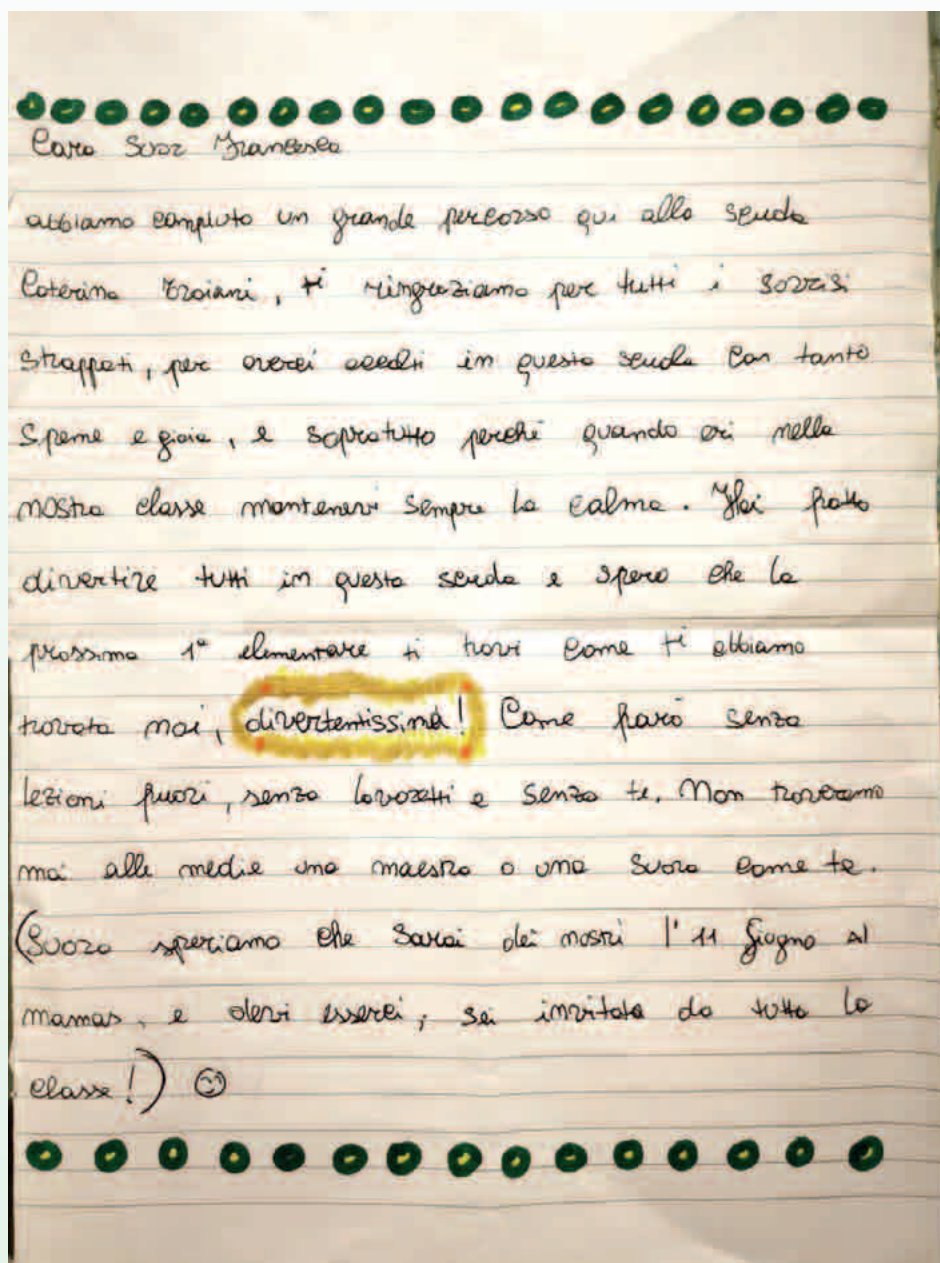 Cara Suor Francesca
abbiamo compiuto un grande percorso qui alla scuola
Caterina Troiani, ti ringraziamo per tutti i sorrisi
strappati, per averci accolti in questa scuola con tanto
speme e gioia, e sopratutto perché quando eri nella
nostra classe mantenevi sempre la calma. Hai fatto
divertire tutti in questa scuola e spero che la
prossima 1ª elementare ti trovi come ti abbiamo
trovata noi, divertentissima! Come farò senza
lezioni fuori, senza lavoretti e senza te. Non troveremo
mai alle medie una maestra o una suora come te.
(Suora speriamo che sarai dei nostri l'11 Giugno al
mamas, e devi esserci, sei invitata da tutta la
classe!)